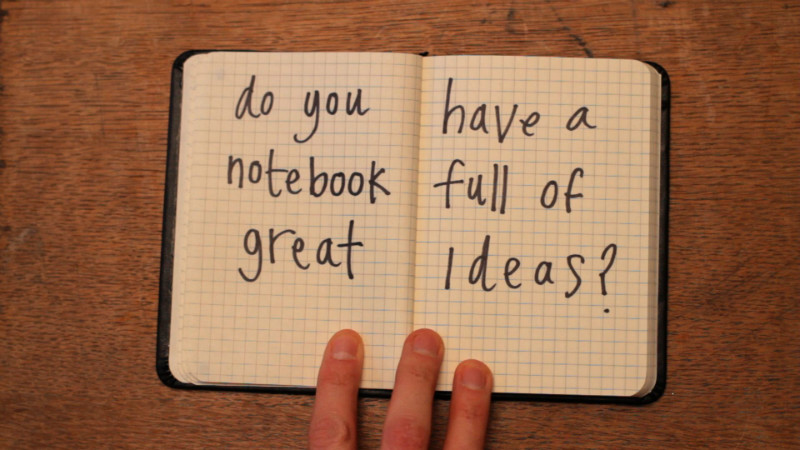 do you have a
notebook full of
great Ideas?